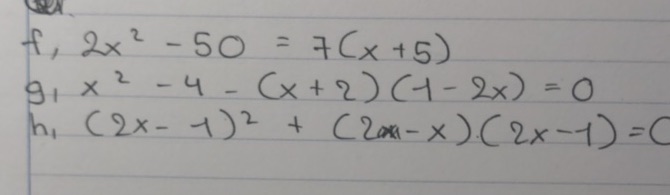 f, 2x² - 50 = 7(x + 5)
g, x² - 4 - (x + 2)(1 - 2x) = 0
h, (2x - 1)² + (2 - x).(2x - 1) = 0